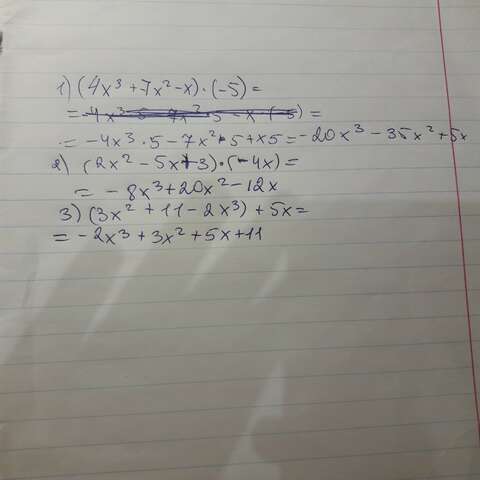 1) (4x³ + 7x² - x) · (-5) =
= -4x³ · 5 - 7x² · 5 + x5 = -20x³ - 35x² + 5x
2) (2x² - 5x + 3) · (-4x) =
= - 8x³ + 20x² - 12x
3) (3x² + 11 - 2x³) + 5x =
= - 2x³ + 3x² + 5x + 11